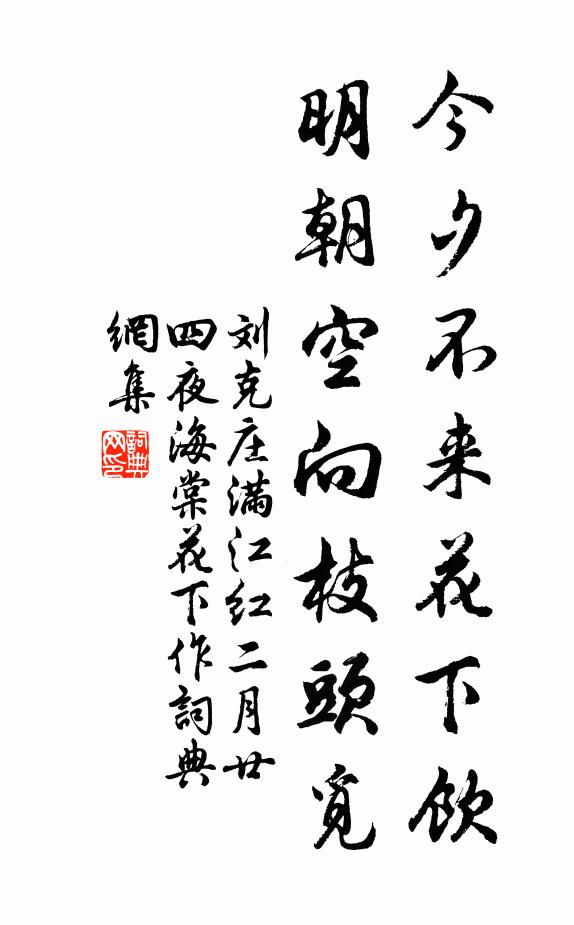 今夕不来花下饮
明朝空向枝頭覓
刘克庄满江红二月廿
四夜海棠花下作詞典
網集
詞典
网印